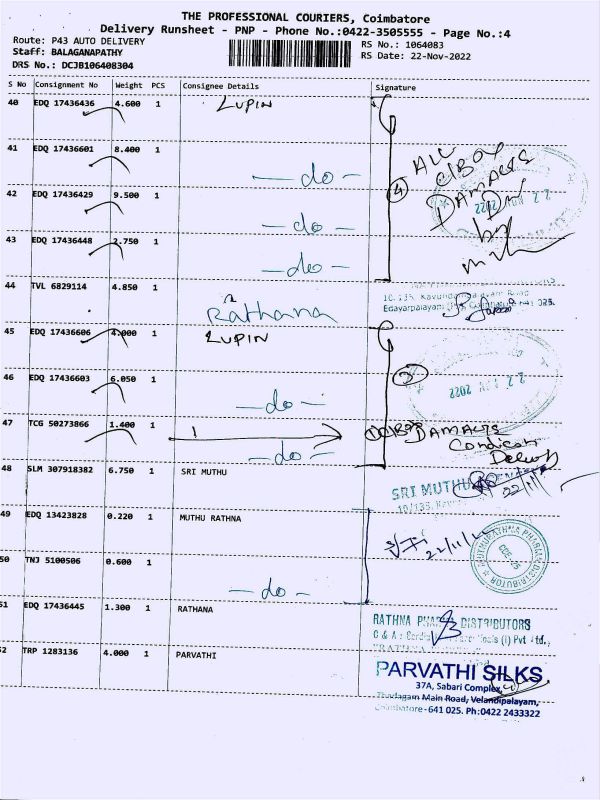 THE PROFESSIONAL COURIERS, Coimbatore
Delivery Runsheet - PNP - Phone No.:0422-3505555 - Page No.:4
Route: P43 AUTO DELIVERY
RS No.: 1064083
Staff: BALAGANAPATHY
RS Date: 22-Nov-2022
DRS No.: DCJB106408304
S No Consignment No Weight PCS Consignee Details Signature
40 EDQ 17436436 4.600 1 LUPIN
41 EDQ 17436601 8.400 1 - do -
ALL
4
DAMAGES
by
22 2022
42 EDQ 17436429 9.500 1 - do -
43 EDQ 17436448 2.750 1 - do -
44 TVL 6829114 4.850 1 Rathana
Edayarpalayam
45 EDQ 17436606 4.000 1 LUPIN
46 EDQ 17436603 6.050 1 - do -
3
22 2022
47 TCG 50273866 1.400 1 - do -
1
DAMAGES
Condition
48 SLM 307918382 6.750 1 SRI MUTHU
SRI MUTHU
22/11/
49 EDQ 13423828 0.220 1 MUTHU RATHNA
22/11/22
MUTHURATHNA PHARMA
DISTRIBUTOR
CBE-25
50 TNJ 5100506 0.600 1 - do -
51 EDQ 17436445 1.300 1 RATHANA
RATHNA PHARMA DISTRIBUTORS
C & A : (I) Pvt Ltd.,
52 TRP 1283136 4.000 1 PARVATHI
PARVATHI SILKS
37A, Sabari Complex,
Thadagam Main Road, Velandipalayam,
Coimbatore - 641 025. Ph:0422 2433322